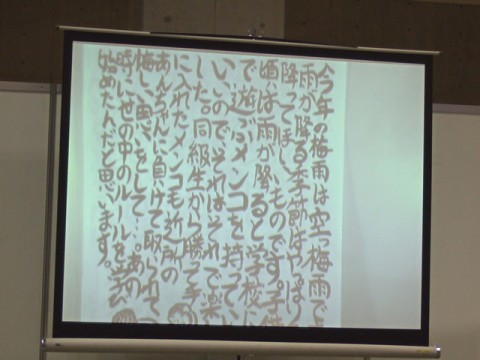 今年の梅雨は空っ梅雨で
雨が降る季節はやっぱり
降ってほしいものです。子供
頃は雨が降ると学校に
で遊ぶメンコを持ってい
いいのでそれはそれで楽
した。同級生から勝って手
に入れたメンコも近所の
あんちゃんに負けて取られて
悔しい思いをして…。あの
時に世の中のルールを学び
始めたんだと思います。